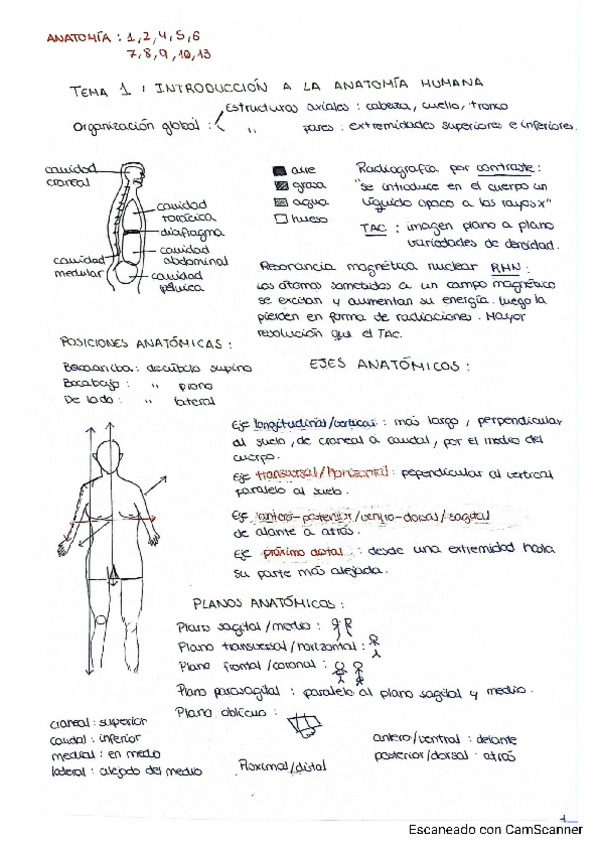 ANATOMÍA : 1, 2, 4, 5, 6
7, 8, 9, 10, 13
TEMA 1 : INTRODUCCIÓN A LA ANATOMÍA HUMANA
Organización global :
Estructuras axiales : cabeza, cuello, tronco
" pares : extremidades superiores e inferiores.
cavidad
craneal
cavidad
torácica
diafragma
cavidad
abdominal
cavidad
medular
cavidad
pélvica
aire
grasa
agua
hueso
Radiografía por contraste :
"se introduce en el cuerpo un
líquido opaco a los rayos x"
TAC : imagen plano a plano
variedades de densidad.
Resonancia magnética nuclear RHN :
Los átomos sometidos a un campo magnético
se excitan y aumentan su energía. Luego la
pierden en forma de radiaciones. Mayor
resolución que el TAC.
POSICIONES ANATÓMICAS :
Bocarriba : decúbito supino
Bocabajo : " prono
De lado : " lateral
EJES ANATÓMICOS :
Eje longitudinal/vertical : más largo, perpendicular
al suelo, de craneal a caudal, por el medio del
cuerpo.
Eje transversal/horizontal : pependicular al vertical
paralelo al suelo.
Eje antero-posterior/ventro-dorsal/sagital
de alante a atrás.
Eje próximo distal : desde una extremidad hasta
su parte más alejada.
PLANOS ANATÓMICOS :
Plano sagital/medio :
Plano transversal/horizontal :
Plano frontal/coronal :
Plano parasagital : paralelo al plano sagital y medio.
Plano oblicuo :
craneal : superior
caudal : inferior
medial : en medio
lateral : alejado del medio
Proximal/distal
antero/ventral : delante
posterior/dorsal : atrás
1
Escaneado con CamScanner